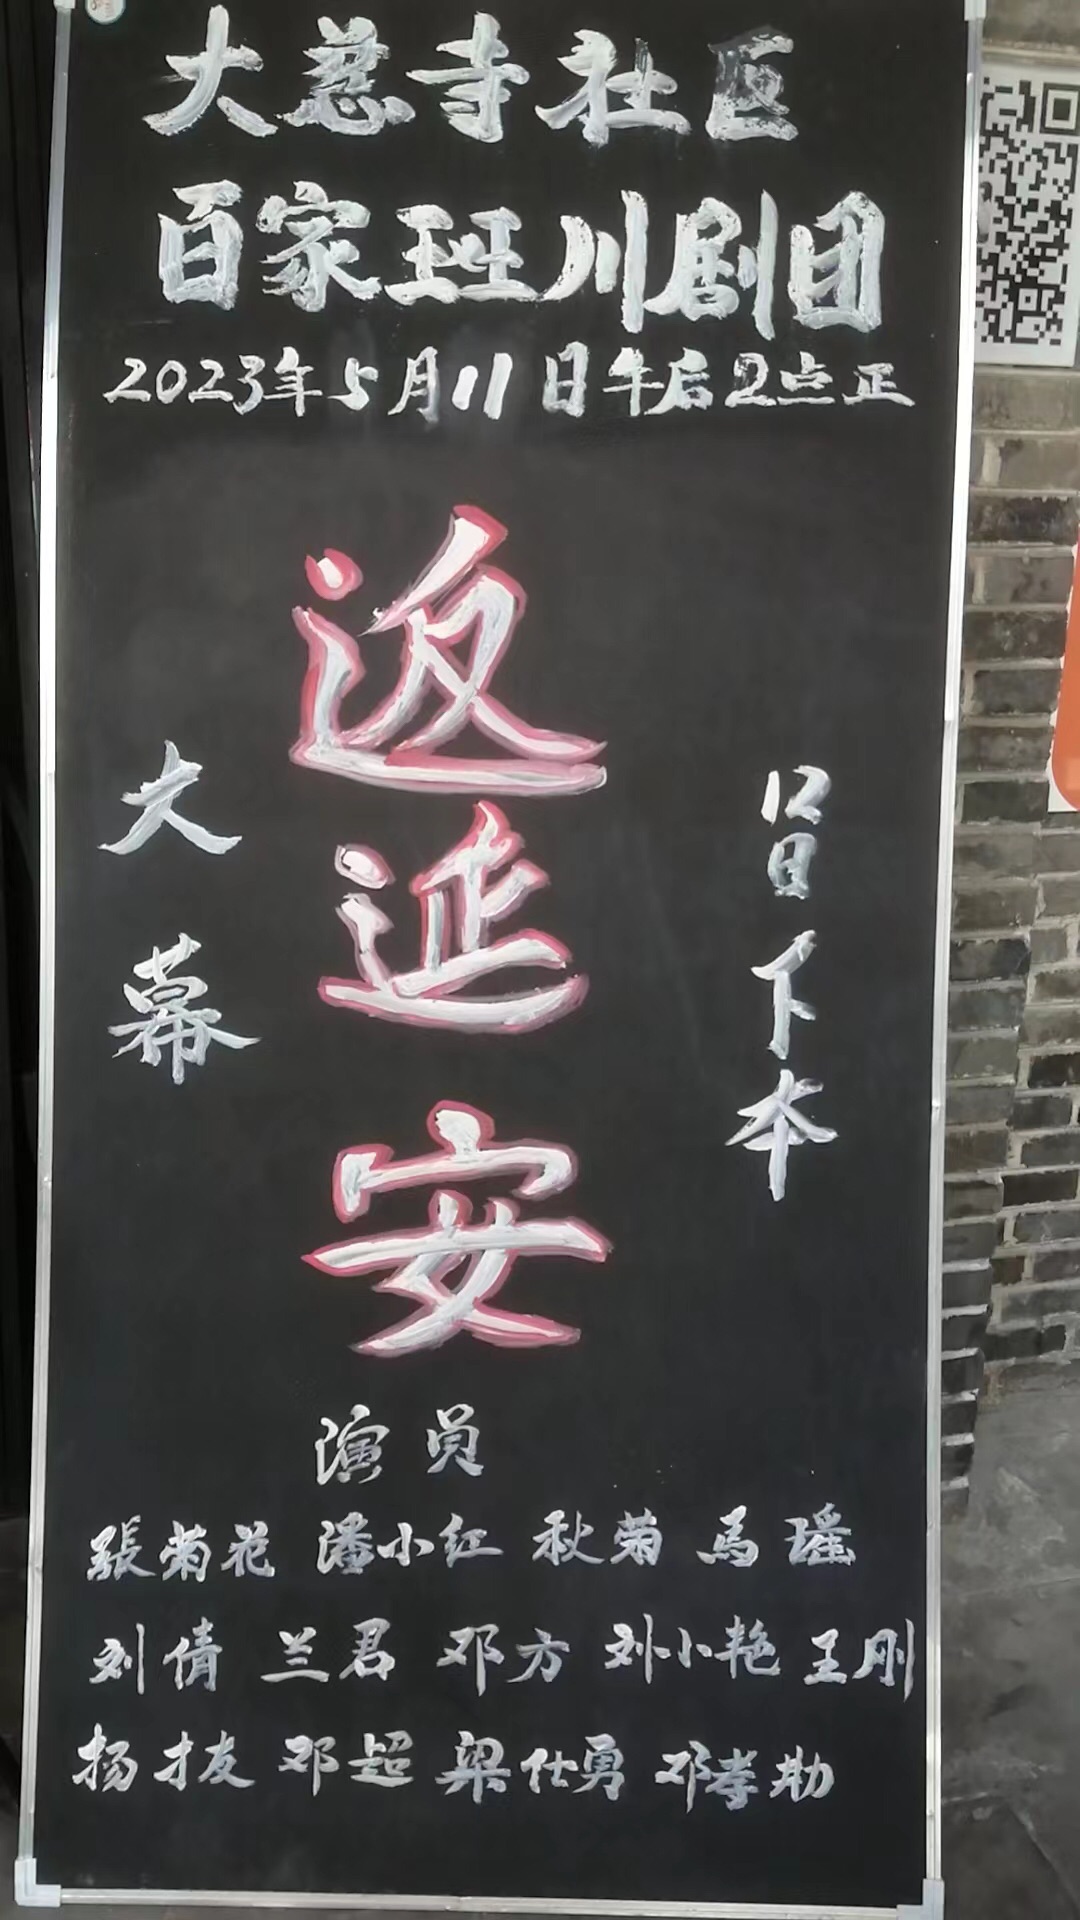 大慈寺社区
百家班川剧团
2023年5月11日午后2点正
返延安
大幕
12日下本
演员
張菊花 潘小红 秋菊 马瑶
刘倩 兰君 邓方 刘小艳 王刚
扬才友 邓超 梁仕勇 邓孝勋